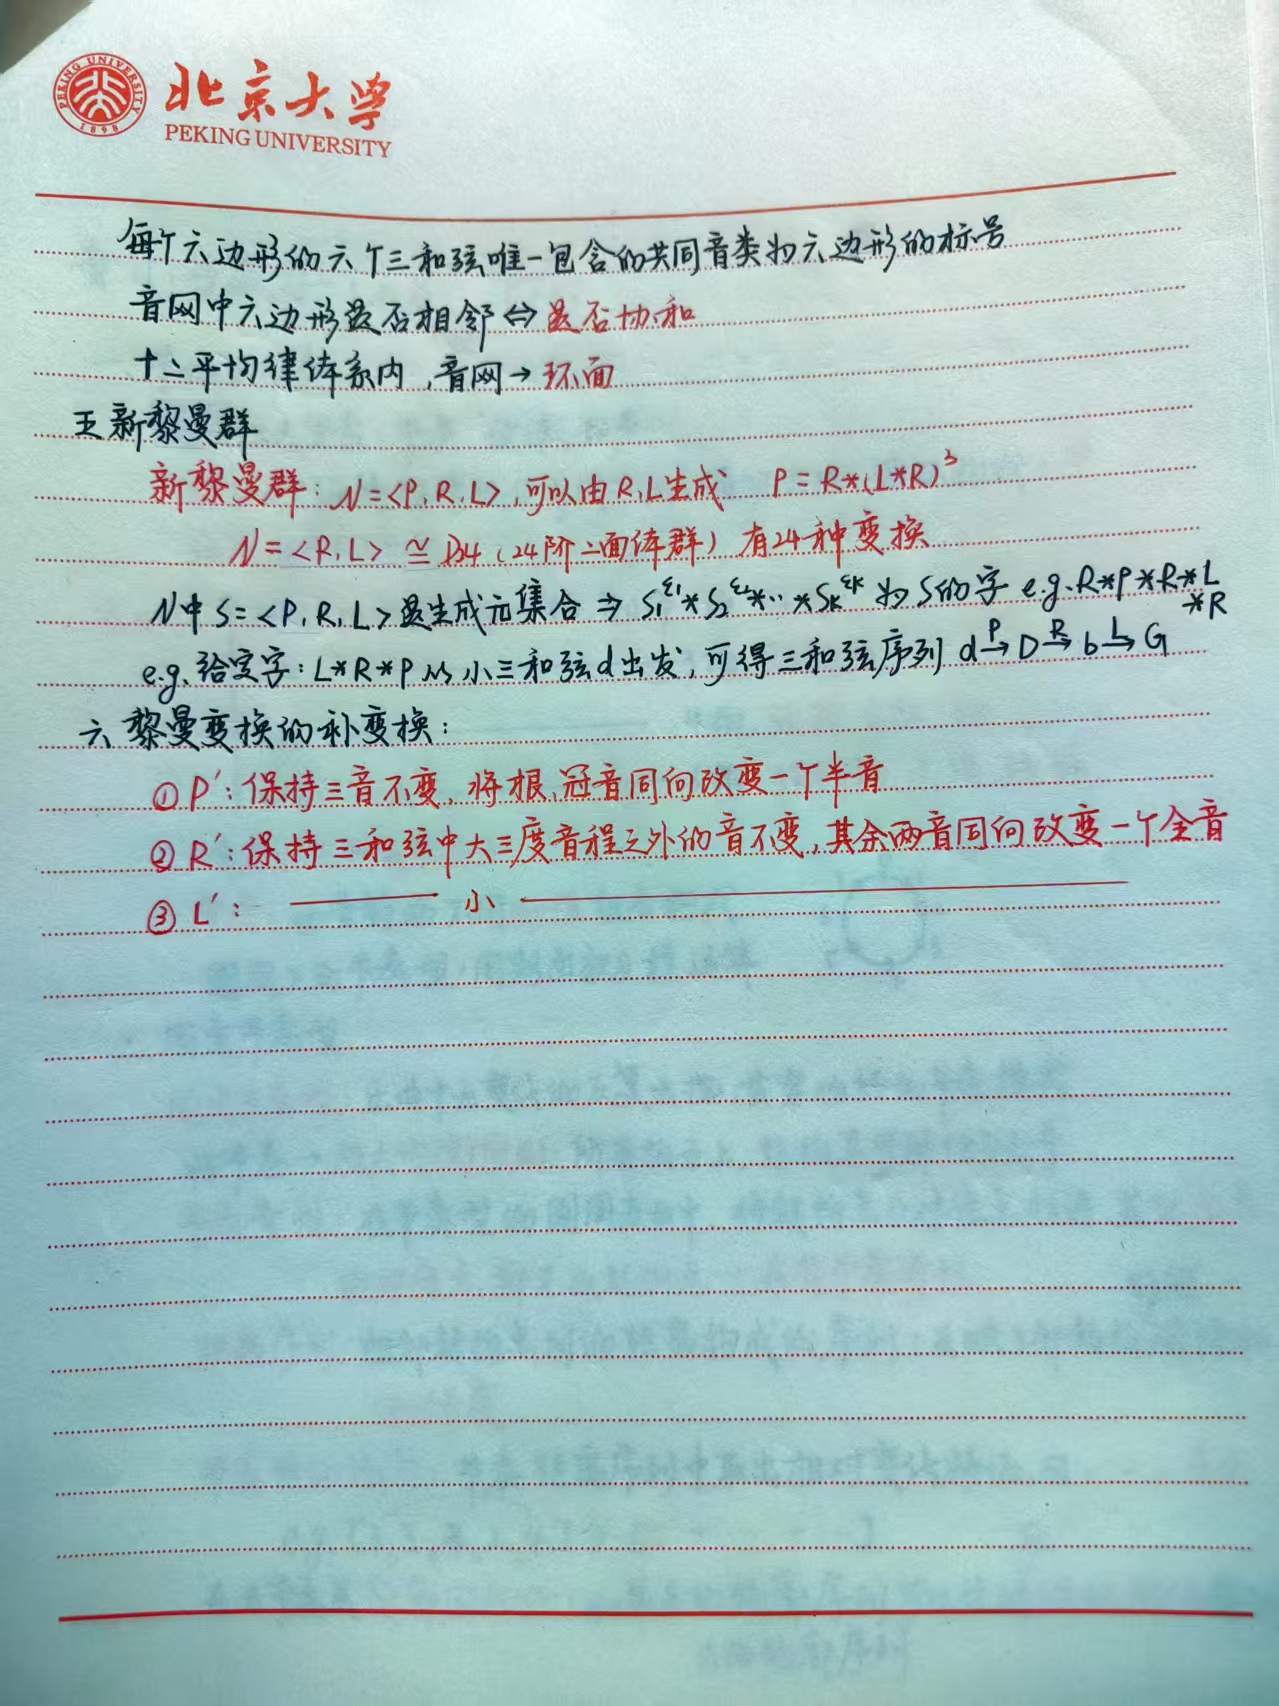 北京大学
PEKING UNIVERSITY
PEKING UNIVERSITY
1898
每个六边形的六个三和弦唯一包含的共同音类为六边形的标号
音网中六边形是否相邻⇔是否协和
十二平均律体系内,音网→环面
五 新黎曼群
新黎曼群: N=<P,R,L>,可以由R,L生成 P=R*(L*R)³
N=<R,L> ≅ D24 (24阶二面体群) 有24种变换
N中S=<P,R,L>是生成元集合 ⇒ S₁^ε1*S₂^ε2*…*Sk^εk 为S的字 e.g.R*P*R*L
*R
e.g.给定字:L*R*P从小三和弦d出发,可得三和弦序列 d→(P)D→(R)b→(L)G
六 黎曼变换的补变换:
① P′:保持三音不变,将根、冠音同向改变一个半音
② R′:保持三和弦中大三度音程之外的音不变,其余两音同向改变一个全音
③ L′: —— 小 ——